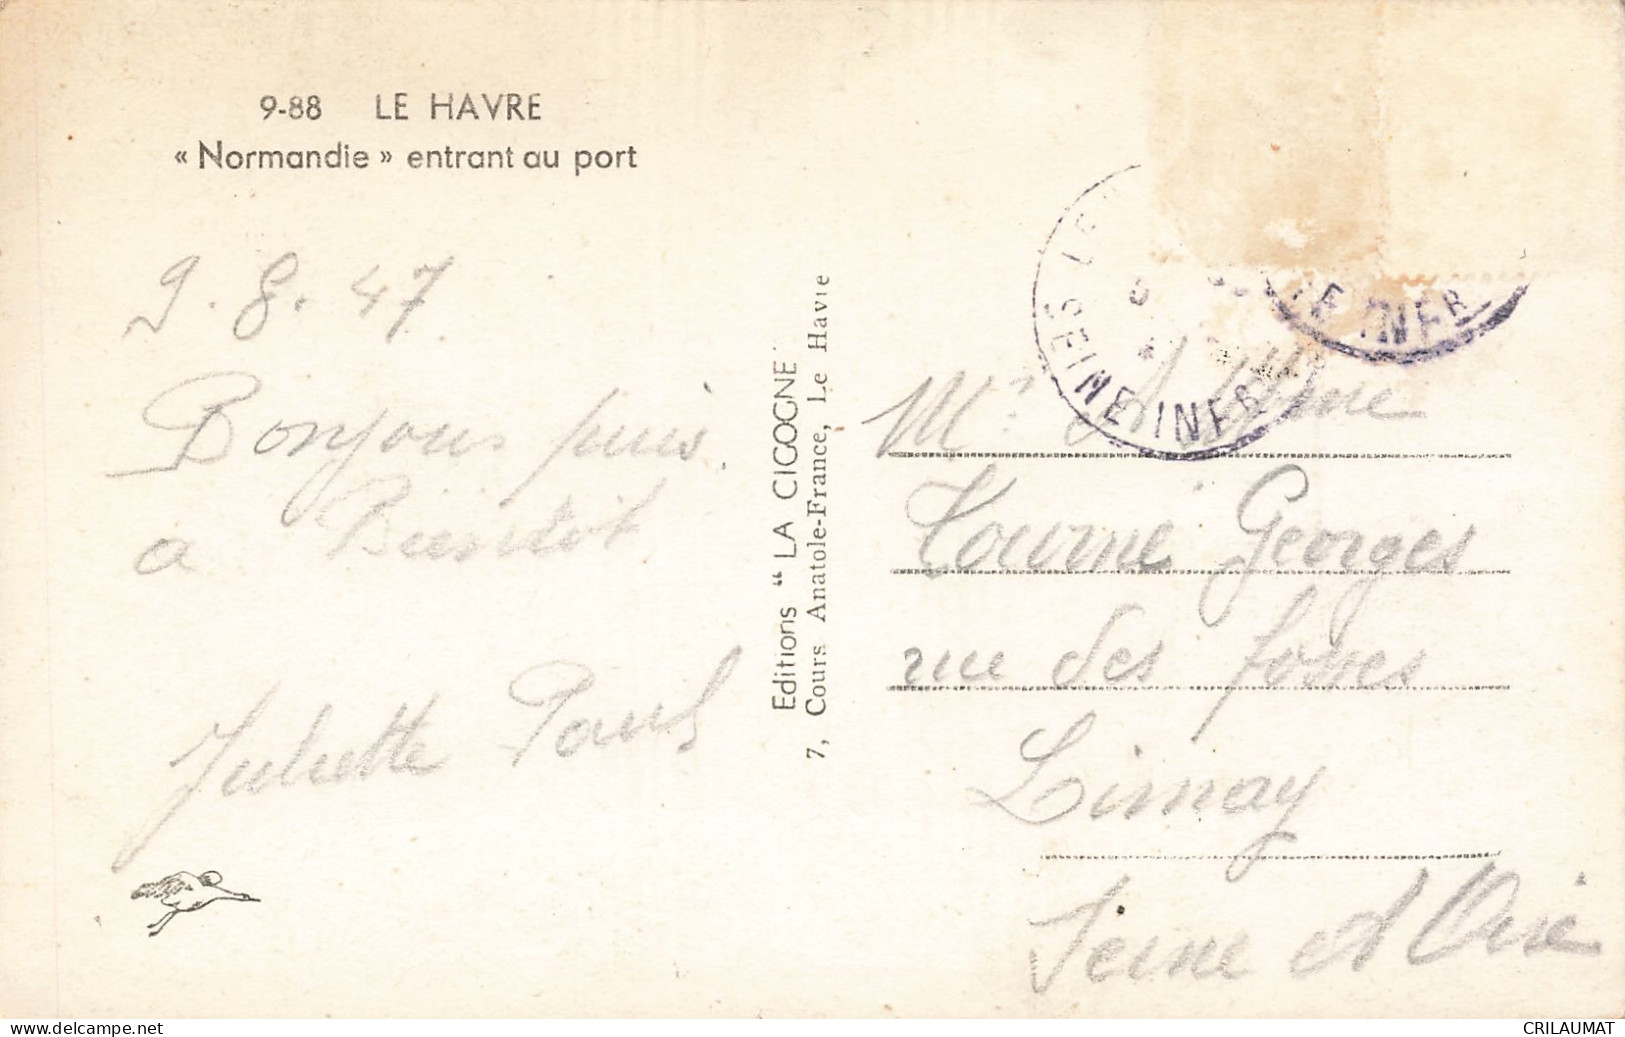 9-88 LE HAVRE
« Normandie » entrant au port
9.8.47
Bonjour puis
a Bientôt
Juliette Paul
Editions "LA CIGOGNE"
7, Cours Anatole-France, Le Havre
SEINE INFRE
NE INFRE
Mr
Tourne Georges
rue des fosses
Limay
Seine et Oise
www.delcampe.net
CRILAUMAT